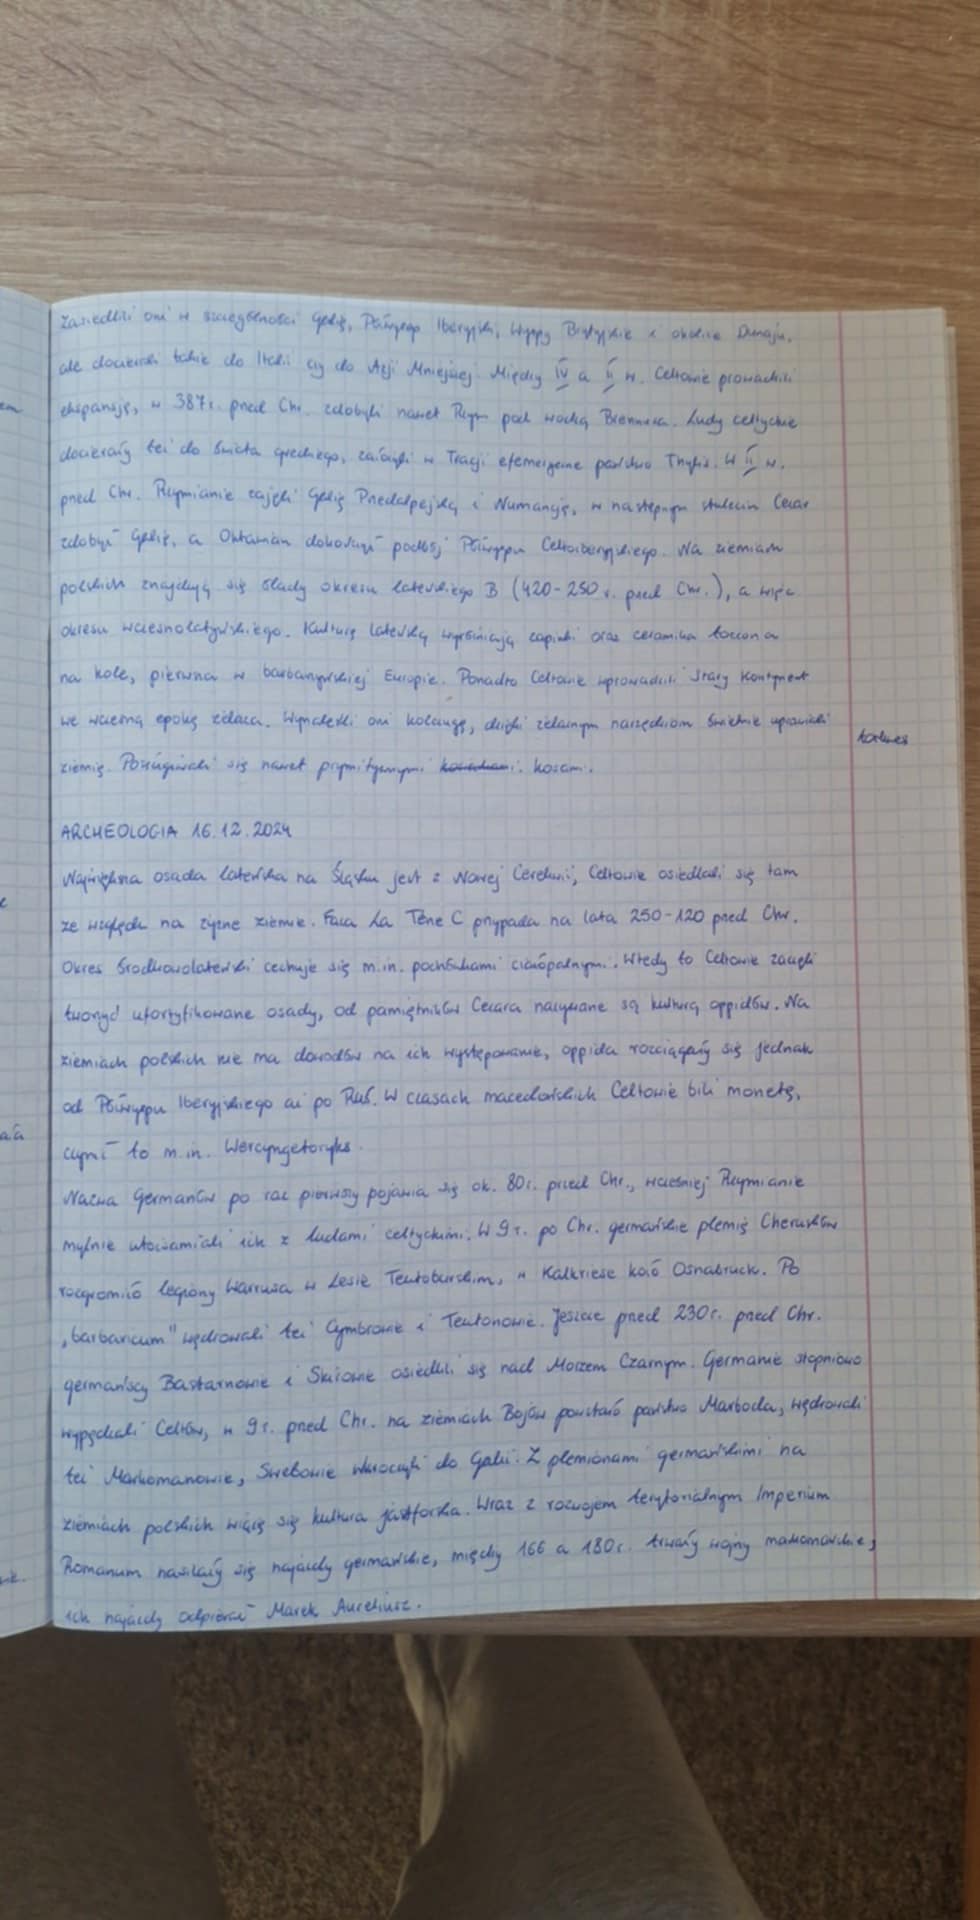 Zasiedlili oni w szczególności Galię, Półwysep Iberyjski, Wyspy Brytyjskie i okolice Dunaju,
ale docierali także do Italii czy do Azji Mniejszej. Między IV a II w. Celtowie prowadzili
ekspansję, w 387 r. przed Chr. zdobyli nawet Rzym pod wodzą Brennusa. Ludy celtyckie
docierały też do świata greckiego, założyli w Tracji efemeryczne państwo Tylis. W II w.
przed Chr. Rzymianie zajęli Galię Przedalpejską i Numancję, w następnym stuleciu Cezar
zdobył Galię, a Oktawian dokończył podbój Półwyspu Celtoiberyjskiego. Na ziemiach
polskich znajdują się ślady okresu lateńskiego B (420-250 r. przed Chr.), a więc
okresu wczesnolateńskiego. Kulturę lateńską wyróżniają zapinki oraz ceramika toczona
na kole, pierwsza w barbarzyńskiej Europie. Ponadto Celtowie wprowadzili Stary Kontynent
we wczesną epokę żelaza. Wynaleźli oni kolczugę, dzięki żelaznym narzędziom świetnie uprawiali
ziemię. Posługiwali się nawet prymitywnymi kosami.
ARCHEOLOGIA 16.12.2024
Największa osada lateńska na Śląsku jest z Nowej Cerekwi, Celtowie osiedlali się tam
ze względu na żyzne ziemie. Faza La Tène C przypada na lata 250-120 przed Chr.
Okres środkowolateński cechuje się m.in. pochówkami ciałopalnymi. Wtedy to Celtowie zaczęli
tworzyć ufortyfikowane osady, od pamiętników Cezara nazywane są kulturą oppidów. Na
ziemiach polskich nie ma dowodów na ich występowanie, oppida rozciągały się jednak
od Półwyspu Iberyjskiego aż po Ruś. W czasach macedońskich Celtowie bili monetę,
czynił to m.in. Wercyngetoryks.
Nazwa Germanów po raz pierwszy pojawia się ok. 80 r. przed Chr., wcześniej Rzymianie
mylnie utożsamiali ich z ludami celtyckimi. W 9 r. po Chr. germańskie plemię Cherusków
rozgromiło legiony Warrusa w Lesie Teutoburskim, w Kalkriese koło Osnabruck. Po
„barbaricum" wędrowali też Cymbrowie i Teutonowie. Jeszcze przed 230 r. przed Chr.
germańscy Bastarnowie i Skirowie osiedlili się nad Morzem Czarnym. Germanie stopniowo
wypędzali Celtów, w 9 r. przed Chr. na ziemiach Bojów powstało państwo Marboda, wędrowali
też Markomanowie, Swebowie wkroczyli do Galii. Z plemionami germańskimi na
ziemiach polskich wiąże się kultura jastforska. Wraz z rozwojem terytorialnym Imperium
Romanum nasilały się najazdy germańskie, między 166 a 180 r. trwały wojny makomańskie,
ich najazdy odpierał Marek Aureliusz.